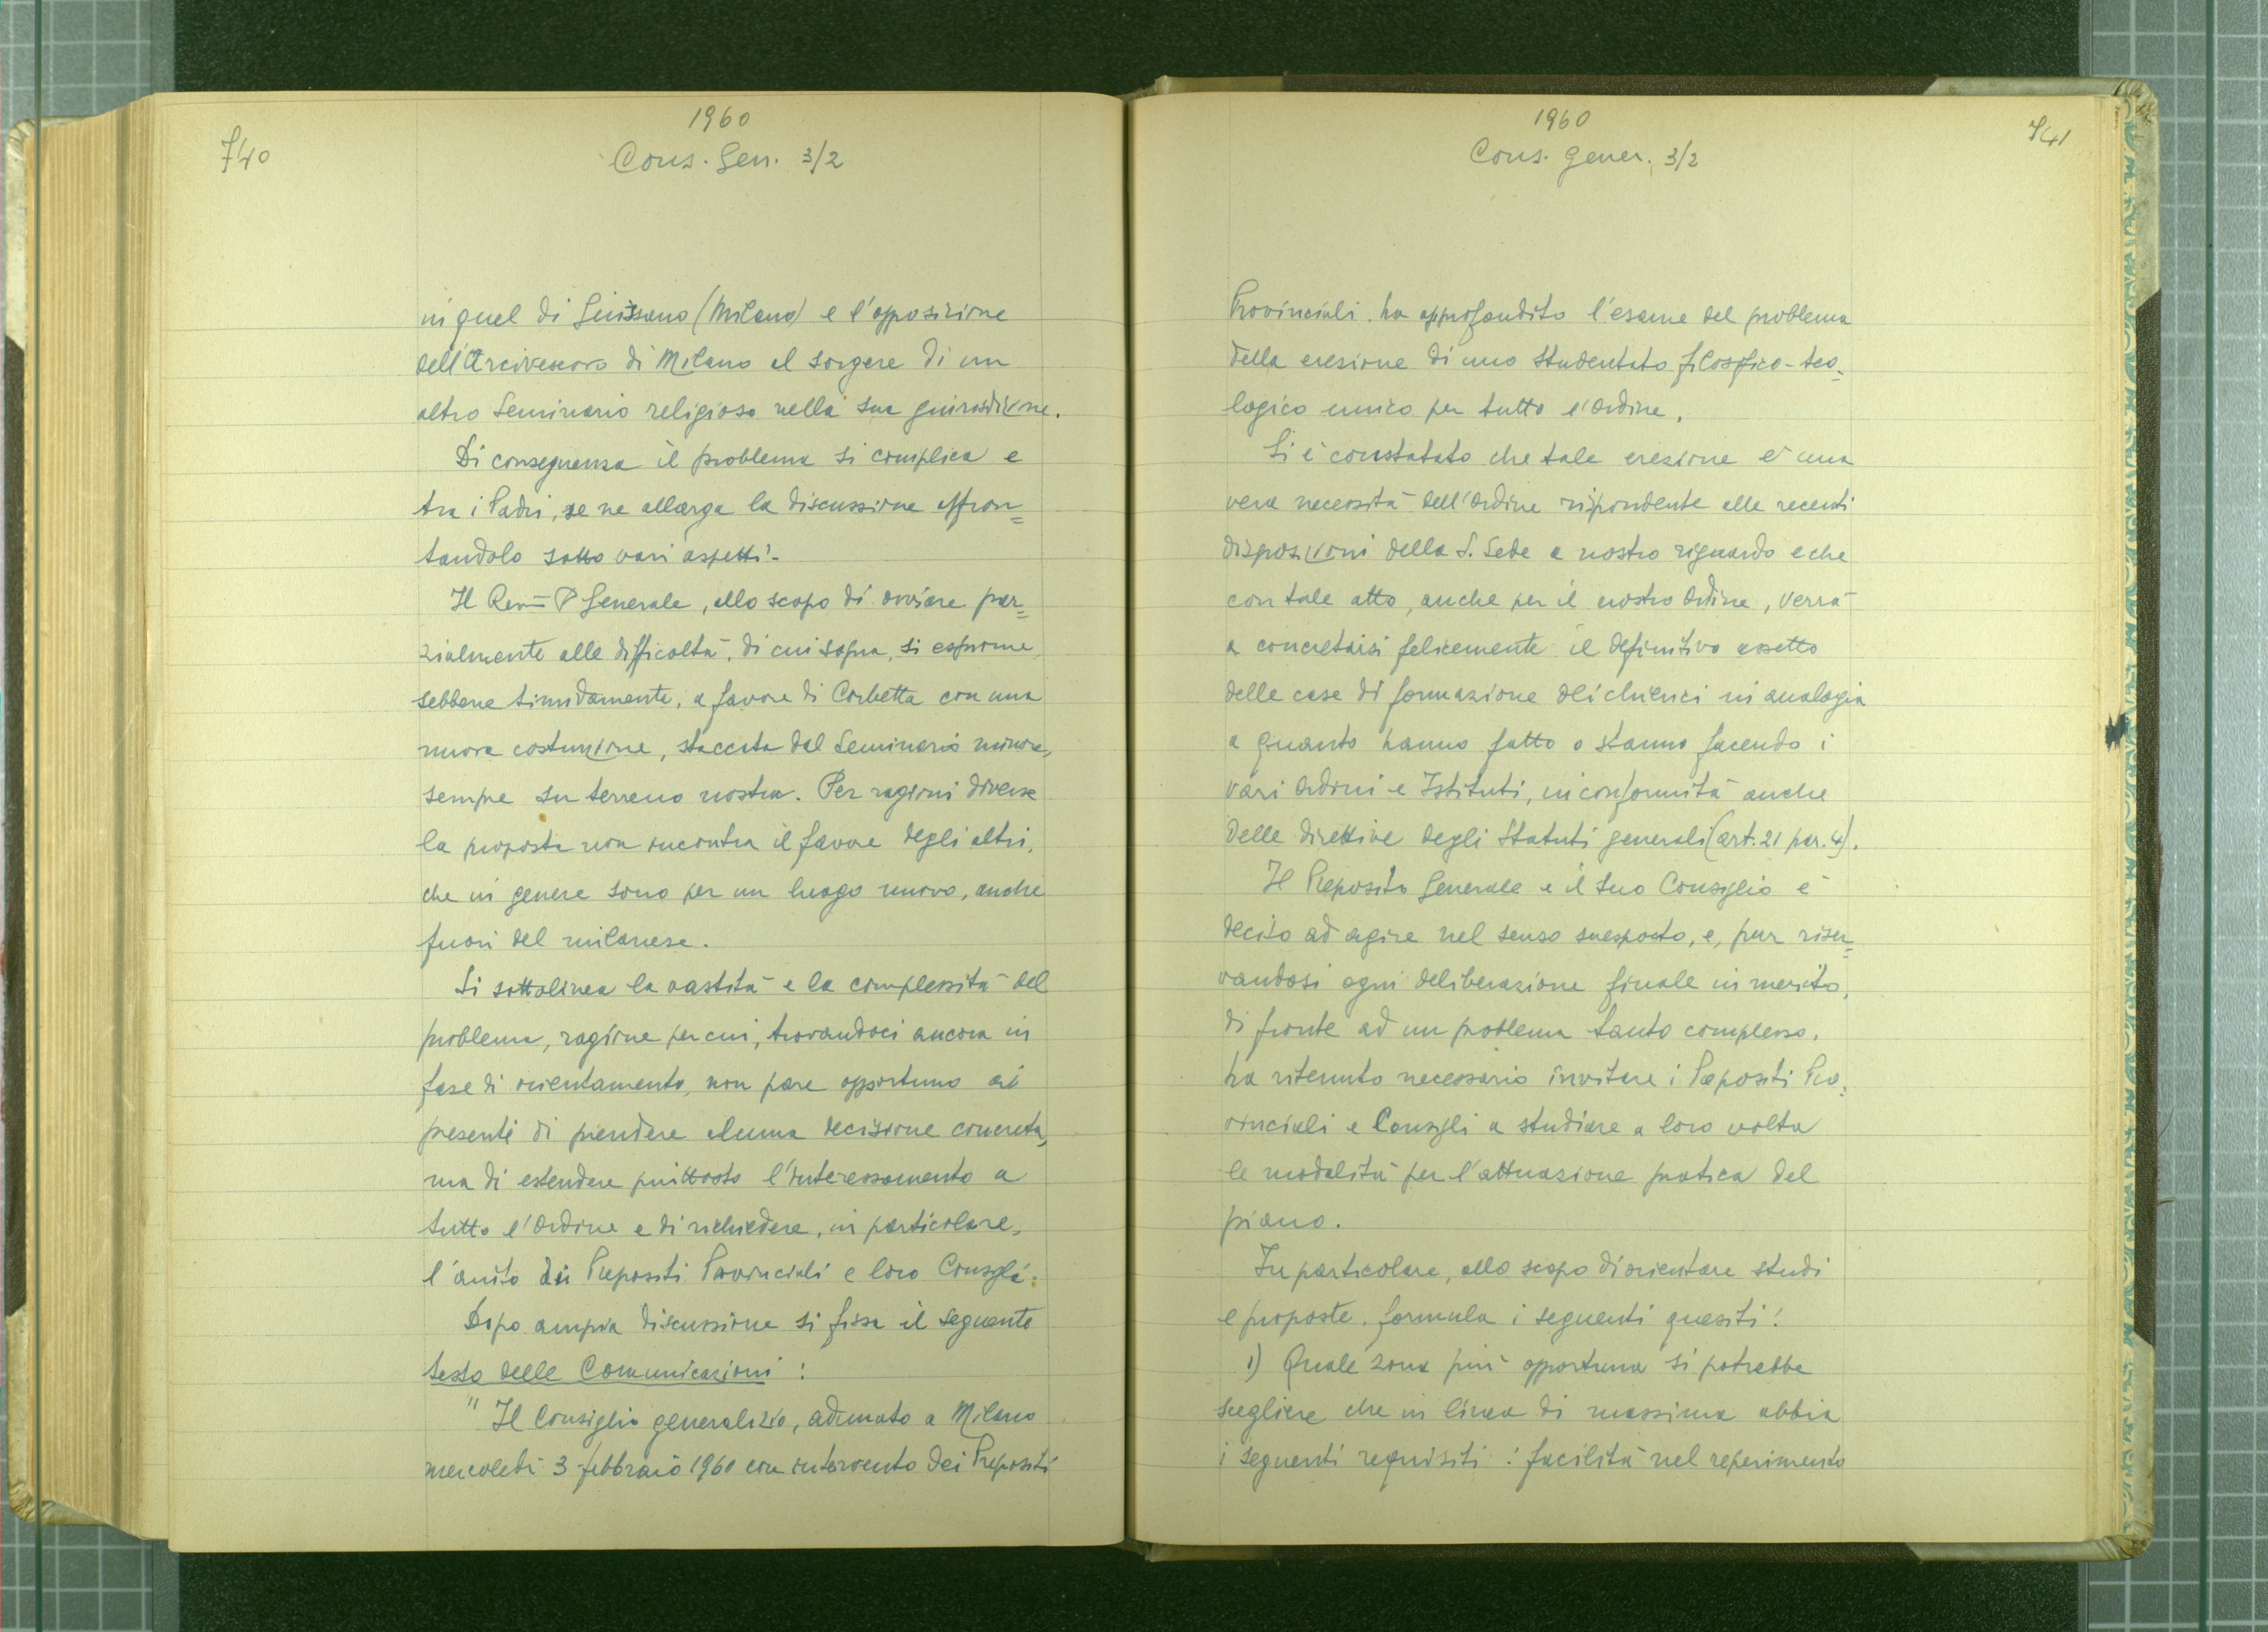 740
1960
Cons. Gen. 3/2
in quel di Giussano (Milano) e l'opposizione
dell'Arcivescovo di Milano al sorgere di un
altro Seminario religioso nella sua giurisdizione.
Di conseguenza il problema si complica e
tra i Padri, se ne allarga la discussione affron=
tandolo sotto vari aspetti.
Il Rev= P Generale, allo scopo di ovviare par=
zialmente alle difficoltà, di cui sopra, si esprime,
sebbene timidamente, a favore di Corbetta con una
nuova costruzione, staccata dal Seminario minore,
sempre su terreno nostro. Per ragioni diverse
la proposta non incontra il favore degli altri,
che in genere sono per un luogo nuovo, anche
fuori del milanese.
Si sottolinea la vastità e la complessità del
problema, ragione per cui, trovandoci ancora in
fase di orientamento, non pare opportuno ai
presenti di prendere alcuna decisione concreta,
ma di estendere piuttosto l'interessamento a
tutto l'Ordine e di richiedere, in particolare,
l'aiuto dei Prepositi Provinciali e loro Consigli.
Dopo ampia discussione si fissa il seguente
testo delle Comunicazioni :
" Il Consiglio generalizio, adunato a Milano
mercoledì 3 febbraio 1960 con intervento dei Prepositi
1960
Cons. gener. 3/2
741
Provinciali. ha approfondito l'esame del problema
della erezione di uno studentato filosofico-teo=
logico unico per tutto l'Ordine.
Si è constatato che tale erezione è una
vera necessità dell'Ordine rispondente alle recenti
disposizioni della S. Sede a nostro riguardo e che
con tale atto, anche per il nostro Ordine, verrà
a concretarsi felicemente il definitivo assetto
delle case di formazione dei chierici in analogia
a quanto hanno fatto o stanno facendo i
vari Ordini e Istituti, in conformità anche
delle direttive degli Statuti generali (art. 21 par. 4).
Il Preposito Generale e il suo Consiglio è
deciso ad agire nel senso suesposto, e, pur riser=
vandosi ogni deliberazione finale in merito,
di fronte ad un problema tanto complesso,
ha ritenuto necessario invitare i Prepositi Pro=
vinciali e Consigli a studiare a loro volta
le modalità per l'attuazione pratica del
piano.
In particolare, allo scopo di orientare studi
e proposte, formula i seguenti quesiti:
1) Quale zona più opportuna si potrebbe
scegliere che in linea di massima abbia
i seguenti requisiti : facilità nel reperimento